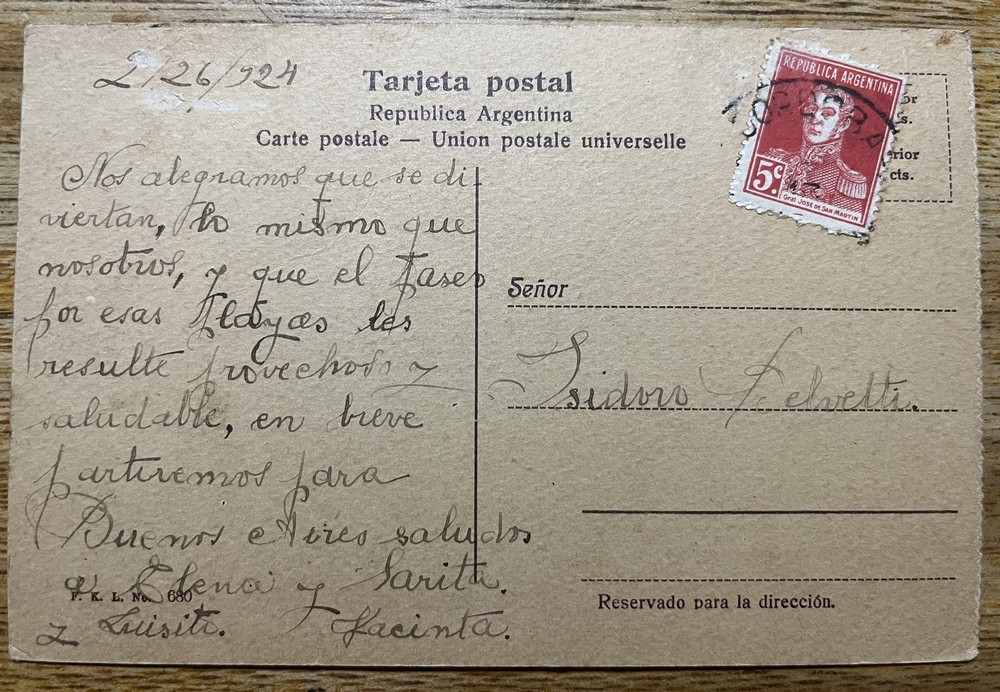 2/26/924
Tarjeta postal
Republica Argentina
Carte postale — Union postale universelle
REPUBLICA ARGENTINA
CORDOBA
5c
Gral JOSÉ DE SAN MARTIN
or
s.
rior
cts.
Nos alegramos que se di-
viertan, lo mismo que
nosotros, y que el paseo
por esas playas les
resulte provechoso y
saludable, en breve
partiremos para
Buenos Aires saludos
a Elena y Sarita.
y Luisito. Jacinta.
F. K. L. No. 680
Señor
Isidoro
Reservado para la dirección.